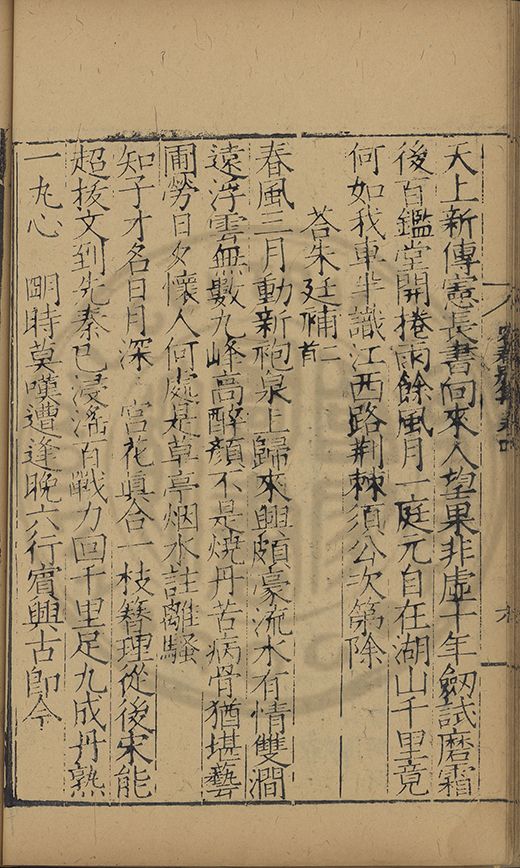 天上新傳憲長書向來人望果非虛十年劒試磨霜
後百鑑堂開捲雨餘風月一庭元自在湖山千里竟
何如我車半識江西路荆棘須公次第除
荅朱廷補二首
春風三月動新袍泉上歸來興頗豪流水有情雙澗
遠浮雲無數九峰高醉顔不是燒丹苦病骨猶堪藝
圃勞日夕懷人何處是草亭烟水註離騷
知子才名日月深 宮花眞合一枝簪理從後宋能
超抜文到先秦已浸滛百戰力回千里足九成丹熟
一九心 明時莫嘆遭逢晚六行賔興古即今